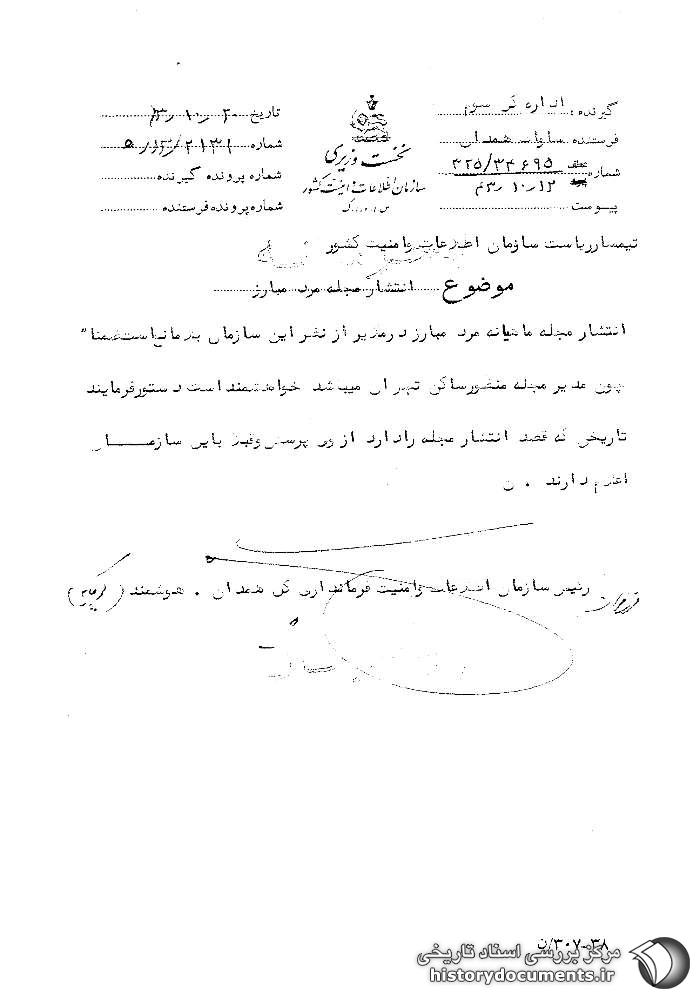 گیرنده : اداره کل سوم
فرستنده ساواک همدان
شماره ۳۲۵/۳۳۶۹۵
۴۳/۱۰/۱۲
پیوست
نخست وزیری
سازمان اطلاعات و امنیت کشور
س . ا . و . ا . ک
تاریخ ۴۳/۱۰/۲۰
شماره
شماره پرونده گیرنده
شماره پرونده فرستنده
تیمسار ریاست سازمان اطلاعات و امنیت کشور
موضوع انتشار مجله مرد مبارز
انتشار مجله ماهیانه مرد مبارز در ملایر از نظر این سازمان بلامانع است ضمنا"
چون مدیر مجله منظور ساکن تهران میباشد خواهشمند است دستور فرمایند
تاریخی که قصد انتشار مجله را دارد از وی پرسش و قبلا باین سازمان
اعلام دارند . ن
رئیس سازمان اطلاعات و امنیت فرمانداری کل همدان . هوشمند
۳۰۷-۳۸/ن
مرکز بررسی اسناد تاریخی
historydocuments.ir